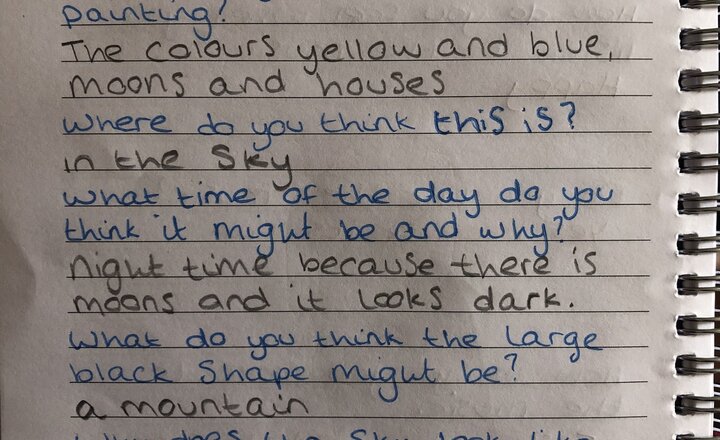 painting?
The colours yellow and blue,
moons and houses
Where do you think this is?
in the sky
What time of the day do you
think it might be and why?
Night time because there is
moons and it looks dark.
What do you think the large
black shape might be?
a mountain
does the sky look like